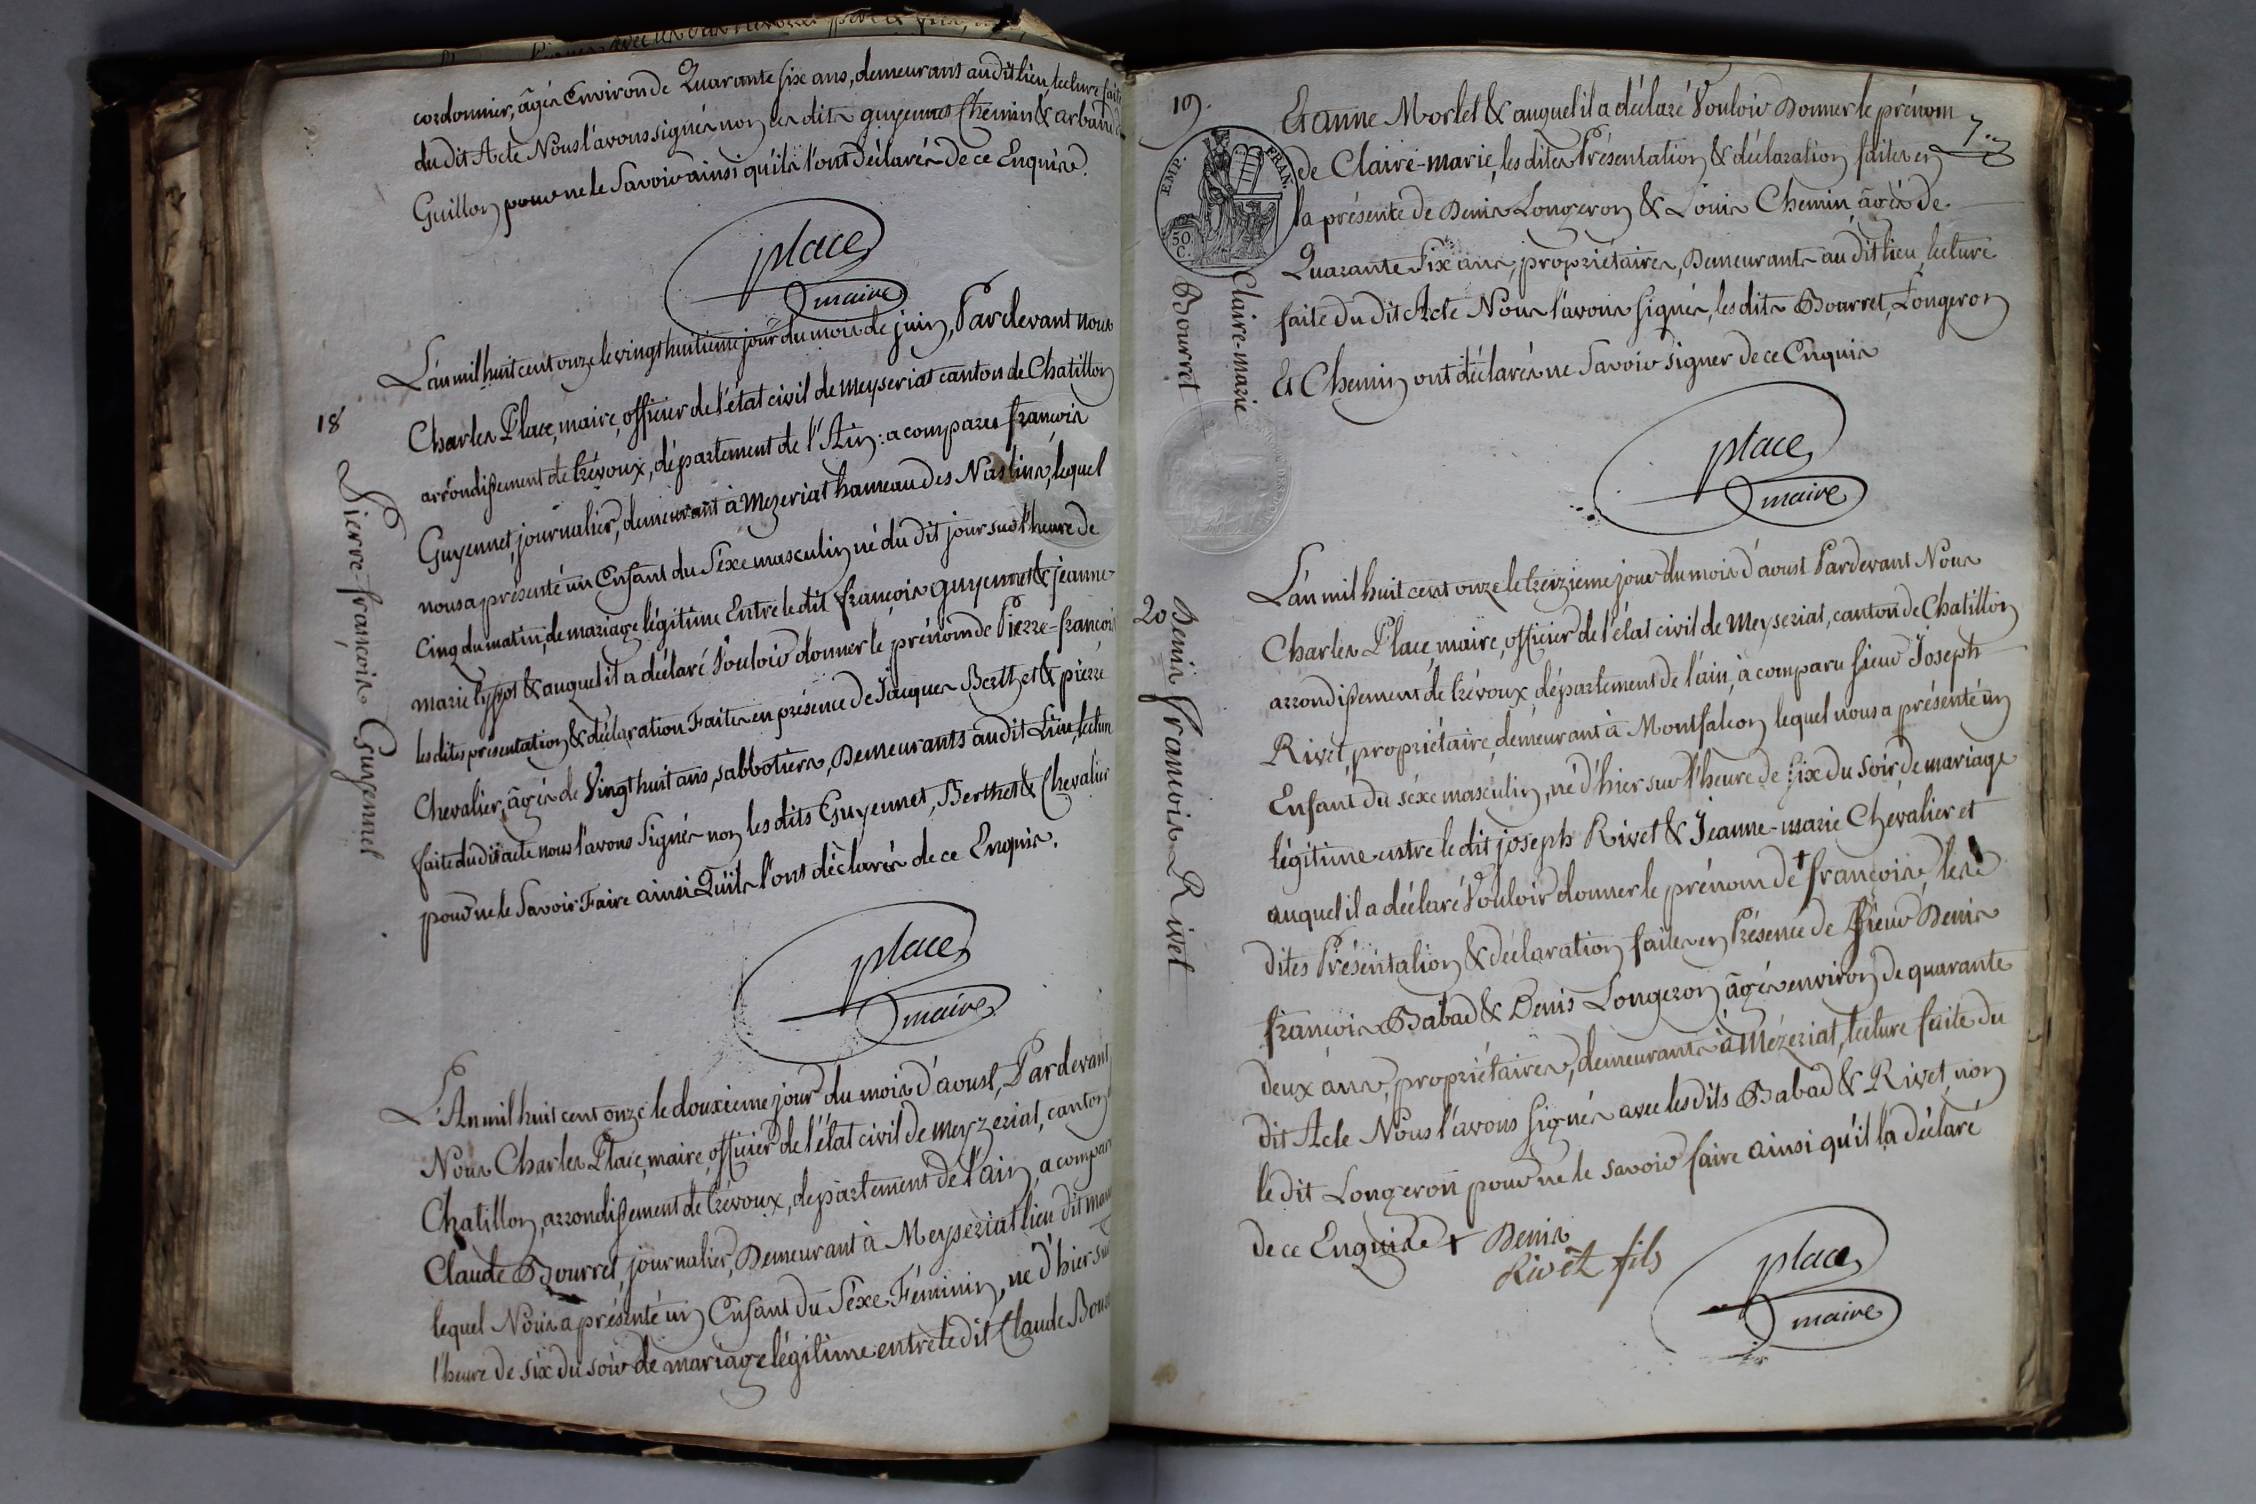 cordonnier, âgés Environ de Quarante six ans, demeurans audit lieu, lecture faite
du dit Acte Nous l'avons signés non les dits guyennet Chemin & arband
Guillon pour ne le Savoir ainsi qu'ils l'ont déclarés de ce Enquis.
place
maire
18
Pierre-françois Guyennet
L'an mil huit cent onze le vingt huitieme jour du mois de juin, Pardevant nous
Charles Place, maire, officier de l'état civil de meyseriat canton de Chatillon
arrondissement de trévoux, département de l'Ain: a comparu françois
Guyennet, journalier, demeurant à Mezeriat hameau des Naslins, lequel
nous a présenté un Enfant du Séxe masculin né du dit jour sur l'heure de
Cinq du matin, de mariage légitime Entre le dit françois guyennet & jeanne-
marie & auquel il a déclaré Vouloir donner le prénom de Pierre-françois
les dites présentation & déclaration Faites en présence de Jacques Berthet & pierre
Chevalier, âgés de Vingt huit ans, sabbotiers, Demeurants audit Lieu, lecture
faite du dit acte nous l'avons Signés non les dits Guyennet, Berthet & Chevalier
pour ne le Savoir Faire ainsi Qu'ils l'ont déclarés de ce Enquis.
place
maire
L'An mil huit cent onze le douxieme jour du mois d'aoust, Pardevant
Nous Charles Place, maire, officier de l'état civil de meyzeriat, canton
Chatillon, arrondissement de trévoux, département de l'ain, a comparu
Claude Bourret, journalier, Demeurant à Meyseriat lieu dit
lequel Nous a présenté un Enfant du Séxe Féminin, né d'hier sur
l'heure de six du soir de mariage légitime entre le dit Claude Bourret
19.
7.
EMP. FRAN.
50 C.
Claire-marie
Bourret
Et anne Morlet & auquel il a déclaré Vouloir Donner le prénom
de Claire-marie, les dites Présentation & déclaration faites en
la présente de Denis Longeron & Louis Chemin, âgés de
Quarante Six ans, propriétaires, Demeurants au dit lieu, lecture
faite du dit Acte Nous l'avons signés, les dits Bourret, Longeron
Et Chemin ont déclarés ne Savoir signer de ce Enquis
place
maire
20
Denis françois Rivet
L'an mil huit cent onze le treizieme jour du mois d'aoust Pardevant Nous
Charles Place, maire, officier de l'état civil de Meyseriat, canton de Chatillon
arrondissement de trévoux, département de l'ain, à comparu sieur Joseph
Rivet, propriétaire, demeurant à Montfalcon lequel nous a présenté un
Enfant du séxe masculin, né d'hier sur l'heure de six du soir, de mariage
légitime entre le dit joseph Rivet & Jeanne-marie Chevalier et
auquel il a déclaré Vouloir donner le prénom de † françois, les
dites Présentation & déclaration faites en Présence de Sieur Denis
françois Babad & Denis Longeron âgés environ de quarante
deux ans, propriétaires, demeurants à Mézeriat, lecture faite du
dit Acte Nous l'avons signés avec les dits Babad & Rivet, non
le dit Longeron pour ne le savoir faire ainsi qu'il l'a déclaré
de ce Enquis. † Denis
Rivet fils
place
maire